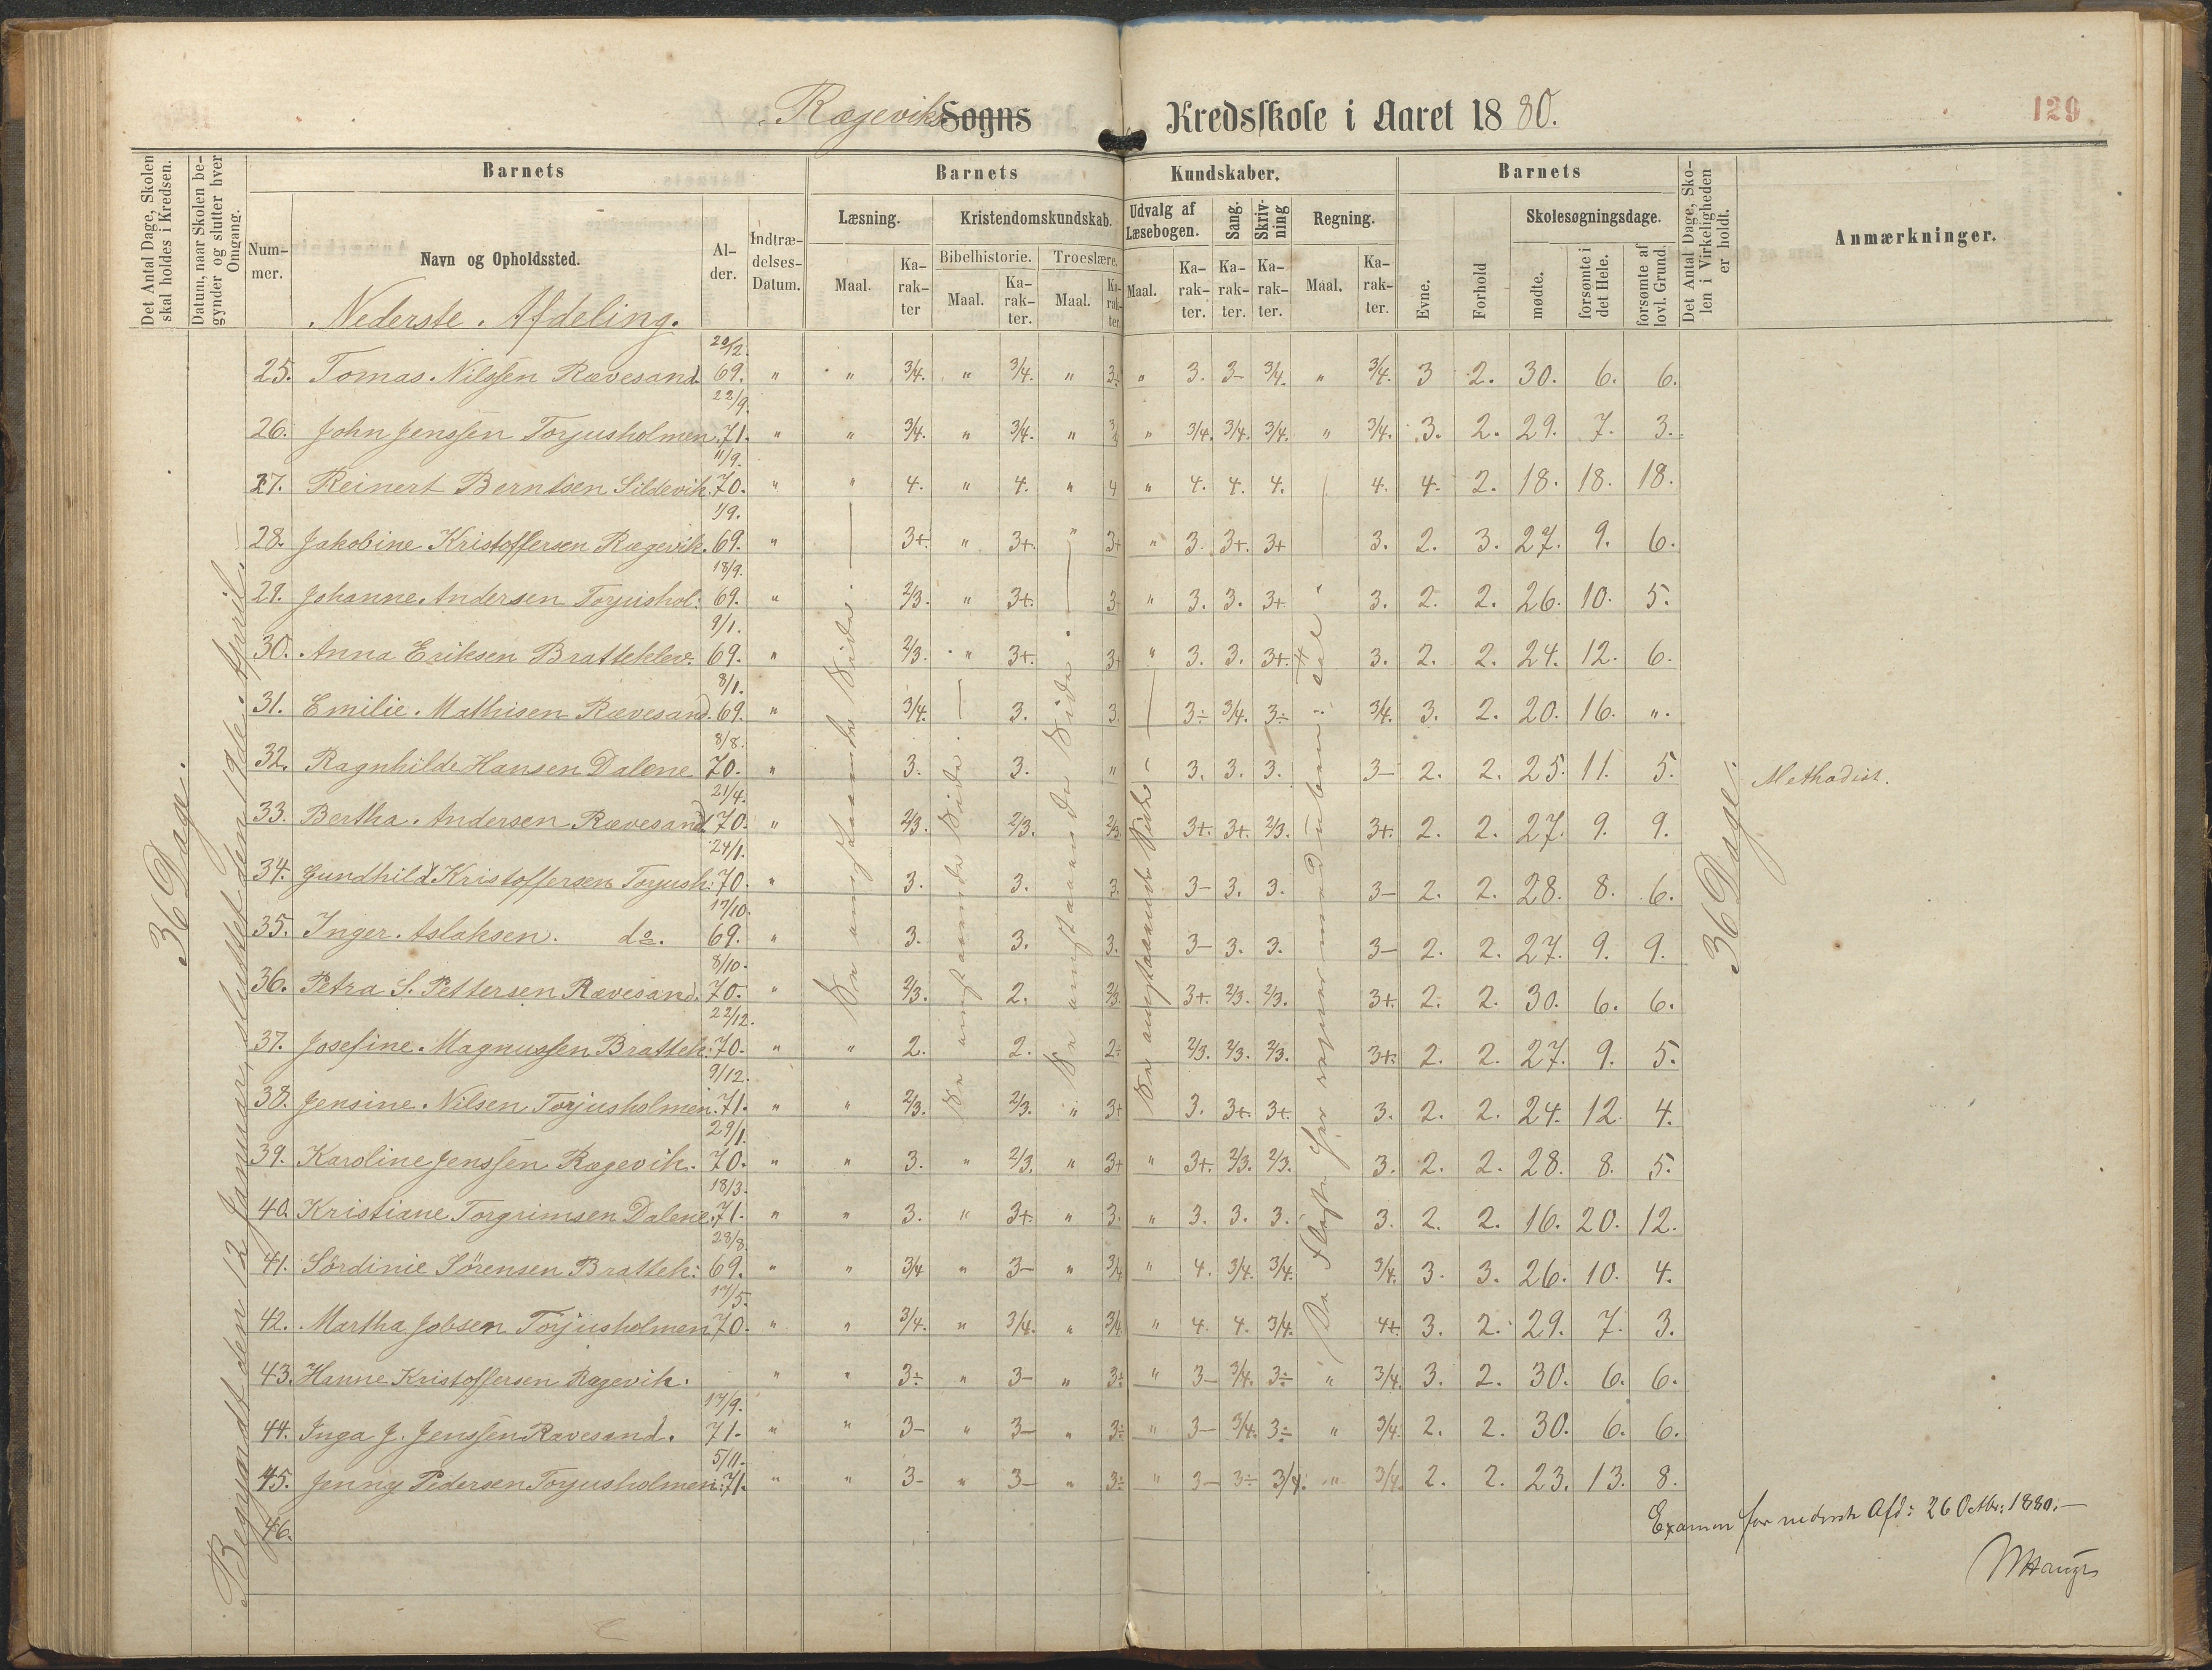 Rægeviks Sogns Kredsskole i Aaret 1880.
129
Det Antal Dage, Skolen skal holdes i Kredsen.
Datum, naar Skolen begynder og slutter hver Omgang.
Barnets
Barnets Kundskaber.
Barnets
Det Antal Dage, Skolen i Virkeligheden er holdt.
Anmærkninger.
Nummer.
Navn og Opholdssted.
Alder.
Indtrædelses-Datum.
Læsning.
Kristendomskundskab.
Udvalg af Læsebogen.
Sang.
Skrivning
Regning.
Evne.
Forhold
Skolesøgningsdage.
Bibelhistorie.
Troeslære.
Maal.
Karakter
Maal.
Karakter.
Maal.
Karakter.
Maal.
Karakter.
Karakter.
Karakter.
Maal.
Karakter.
mødte.
forsømte i det Hele.
forsømte af lovl. Grund.
Nederste Afdeling.
36 Dage.
Begyndt den 12 Januar, sluttet den 19de April.
25. Tomas Nilssen Rævesand 20/12. 69. " " 3/4. " 3/4. " 3÷ " 3. 3- 3/4. " 3/4. 3 2. 30. 6. 6.
26. John Jenssen Torjusholmen 22/9. 71. " " 3/4. " 3/4. " 3/4 " 3/4. 3/4. 3/4. " 3/4. 3. 2. 29. 7. 3.
27. Reinert Berntsen Sildevik. 11/9. 70. " " 4. " 4. " 4 " 4. 4. 4. 4. 4. 2. 18. 18. 18.
28. Jakobine Kristoffersen Rægevik. 1/9. 69. " 3+. " 3+. " 3+ " 3. 3+. 3+ 3. 2. 3. 27. 9. 6.
29. Johanne Andersen Torjushol: 18/9. 69. " 2/3. " 3+. 3+ " 3. 3. 3+ 3. 2. 2. 26. 10. 5.
30. Anna Eriksen Bratteklev. 9/1. 69. " 2/3. " 3+. 3+ " 3. 3. 3+. 3. 2. 2. 24. 12. 6.
31. Emilie Mathisen Rævesand. 8/1. 69. " 3/4. 3. 3. 3÷ 3/4. 3÷ 3/4. 3. 2. 20. 16. ".
32. Ragnhilde Hansen Dalene 8/8. 70. " 3. 3. " 3. 3. 3. 3- 2. 2. 25. 11. 5. Methodist.
33. Bertha Andersen Rævesand 21/4. 70. " 2/3. 2/3. 2/3. 3+. 3+. 2/3. 3+. 2. 2. 27. 9. 9.
34. Gundhild Kristoffersen Torjush: 24/1. 70. " 3. 3. 3. 3- 3. 3. 3- 2. 2. 28. 8. 6.
35. Inger Aslaksen. do. 17/10. 69. " 3. 3. 3. 3- 3. 3. 3- 2. 2. 27. 9. 9.
36. Petra S. Pettersen Rævesand. 8/10. 70. " 2/3. 2. 2/3. 3+. 2/3. 2/3. 3+. 2. 2. 30. 6. 6.
37. Josefine Magnussen Brattek: 22/12. 70. " " 2. 2. 2÷ 2/3. 2/3. 2/3. 3+. 2. 2. 27. 9. 5.
38. Jensine Nilsen Torjusholmen. 9/12. 71. " " 2/3. 2/3. " 3+ 3. 3+. 3+. 3. 2. 2. 24. 12. 4.
39. Karoline Jenssen Rægevik. 29/1. 70. " " 3. " 2/3. " 3+ " 3+. 2/3. 2/3. 3. 2. 2. 28. 8. 5.
40. Kristiane Torgrimsen Dalene. 18/3. 71. " " 3. " 3+. " 3. " 3. 3. 3. 3. 2. 2. 16. 20. 12.
41. Sördinie Sörensen Brattek: 28/8. 69. " " 3/4 " 3- " 3/4 " 4. 3/4. 3/4. 3/4. 3. 3. 26. 10. 4.
42. Martha Jobsen Torjusholmen 17/5. 70. " " 3/4. " 3/4. " 3/4 " 4. 4. 3/4. 4+. 3. 2. 29. 7. 3.
43. Hanne Kristoffersen Rægevik. " " 3÷ " 3- " 3÷ " 3- 3/4. 3÷ " 3/4. 3. 2. 30. 6. 6.
44. Inga J. Jenssen Rævesand. 17/9. 71. " " 3- " 3- " 3÷ " 3- 3/4. 3÷ " 3/4. 2. 2. 30. 6. 6.
45. Jenny Pedersen Torjusholmen: 5/11. 71. " " 3- " 3- " 3÷ " 3- 3÷ 3/4. " 3/4. 2. 2. 23. 13. 8.
46.
Se omstaaende Side.
Se omstaaende Side.
Se omstaaende Side.
Se omstaaende Side
De fleste her regner med
36 Dage.
Examen for nederste Afd: 26 Octbr: 1880.